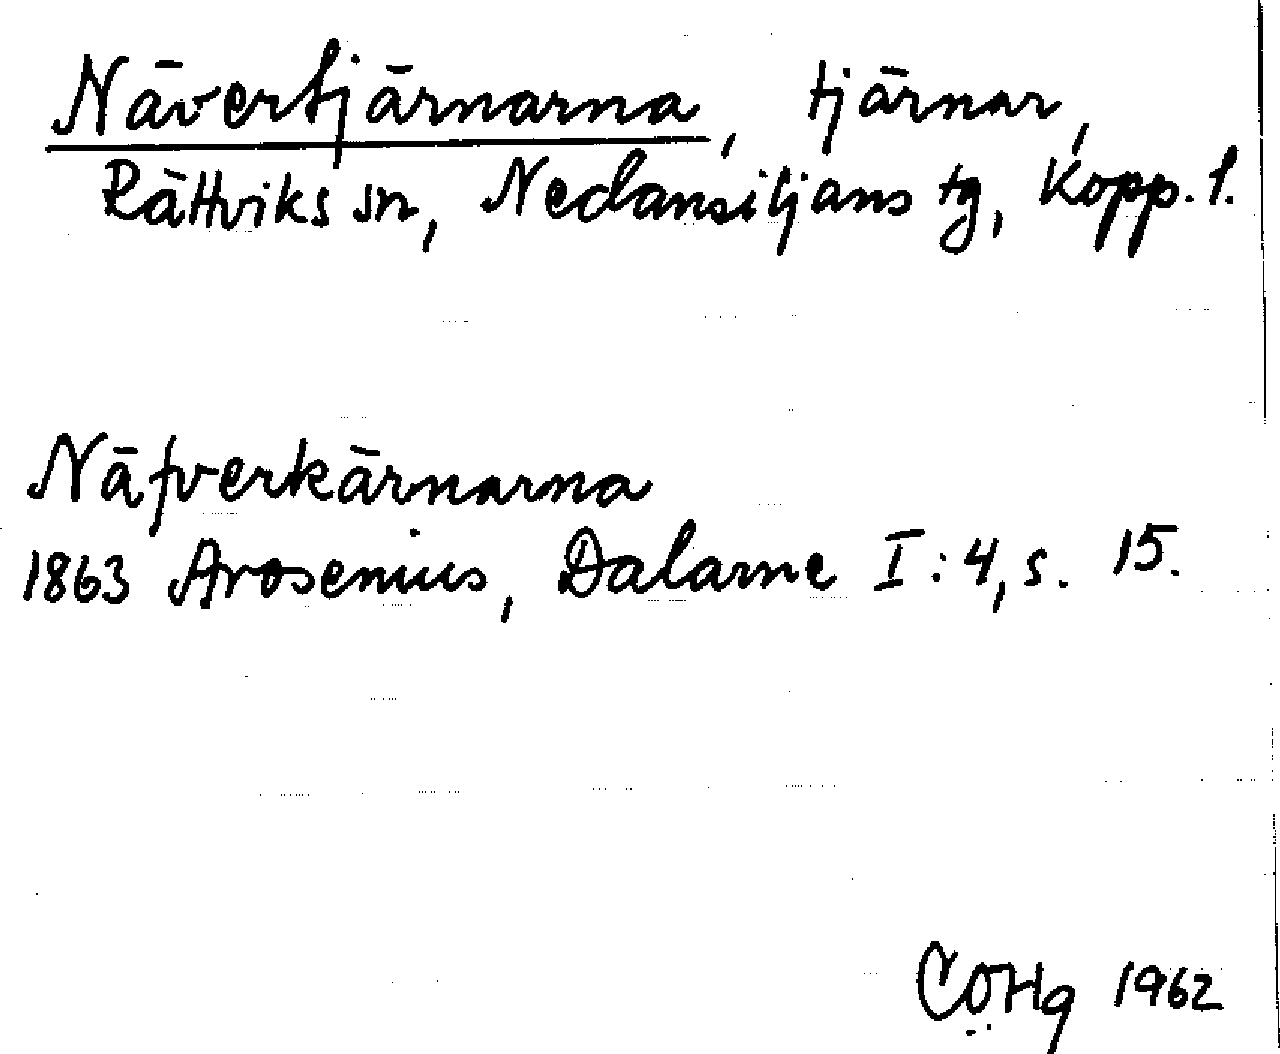 Nävertjärnarna, tjärnar,
Rättviks sn, Nedansiljans tg, Kopp. l.
Näfverkärnarna
1863 Arosenius, Dalarne I:4, s. 15.
COHg 1962